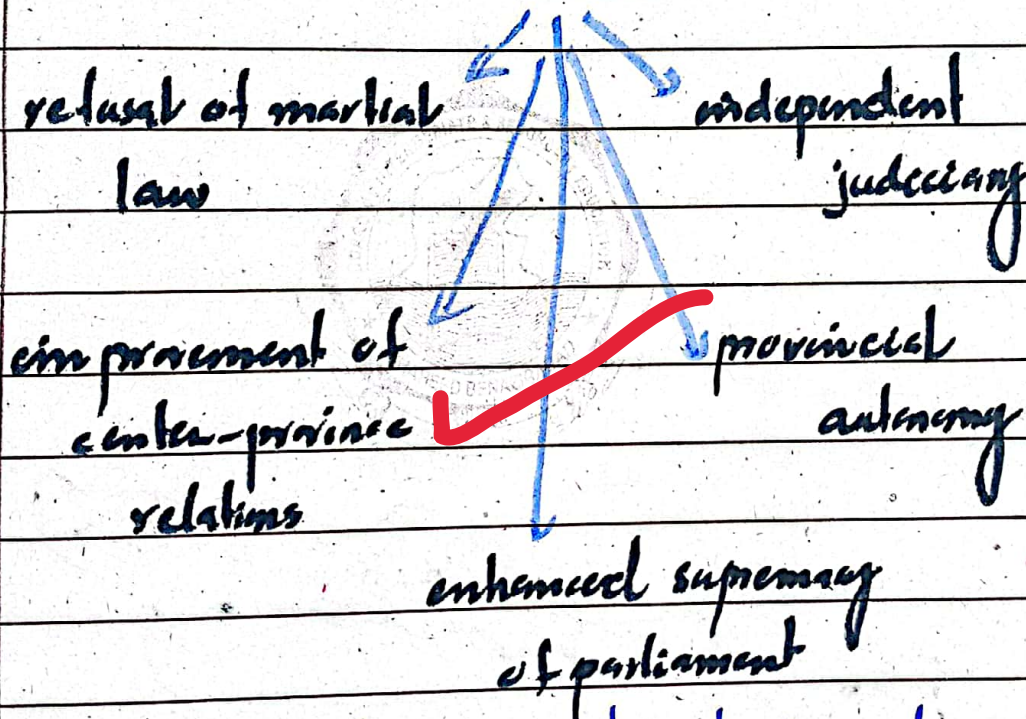 refusal of martial
law
independent
judiciary
improvement of
center-province
relations
provincial
autonomy
enhanced supremacy
of parliament